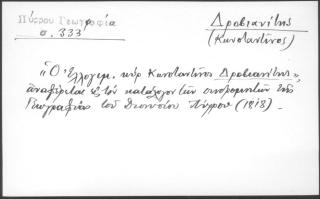 Πύρρου Γεωγραφία
σ. 333
Δροβιανίτης
(Κωνσταντῖνος)
"Ὁ Ἐλλογιμ. κὺρ Κωνσταντῖνος Δροβιανίτης",
ἀναφέρεται εἰς τὸν κατάλογον τῶν συνδρομητῶν τῆς
Γεωγραφίας τοῦ Διονυσίου Πύρρου (1818).